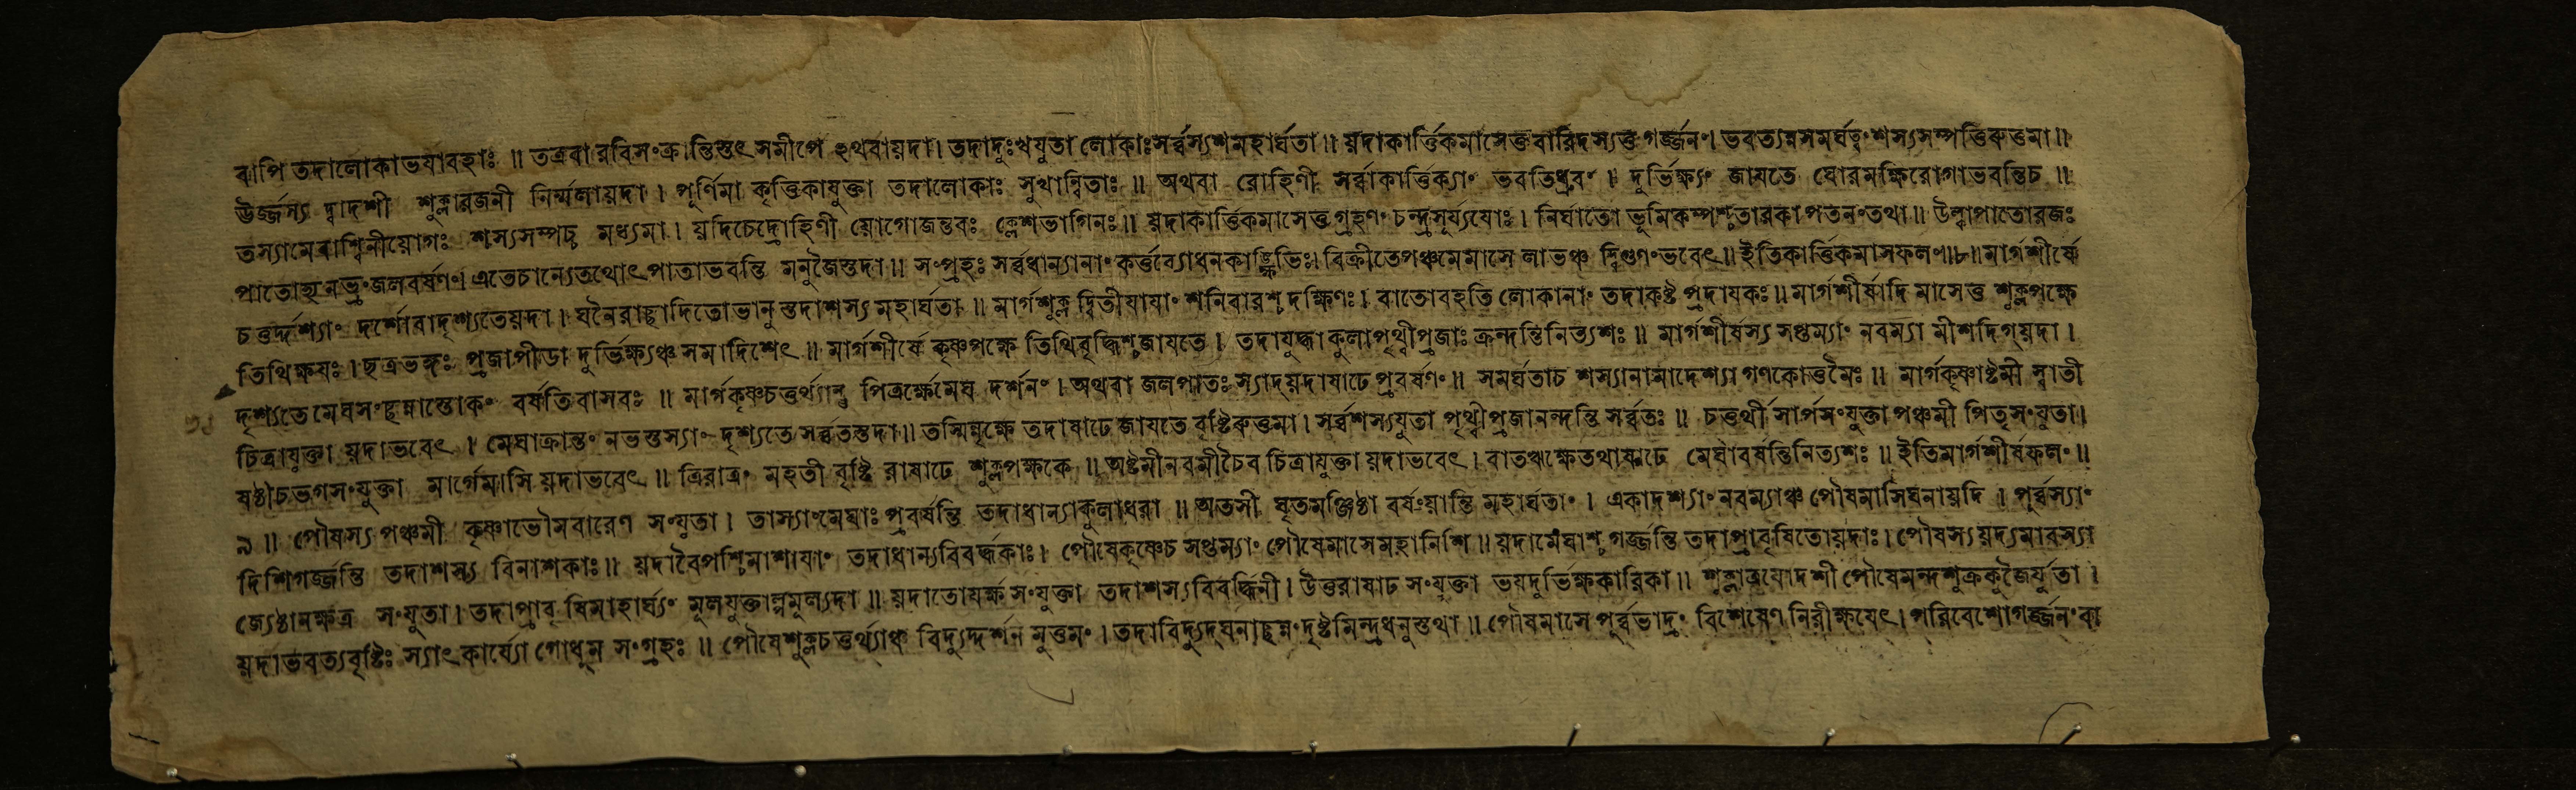 বাপি তদালোকাভযাবহাঃ ॥ তত্রবারবিসংক্রান্তিস্তৎ সমীপে ঽথবায়দা। তদাদুঃখযুতা লোকাঃসর্ব্বস্যশমহার্ঘতা ॥ য়দাকার্ত্তিকমাসেত্তবারিদস্যত্তগর্জ্জনং। ভবত্যন্নসমর্ঘত্বংশস্যসম্পত্তিরুত্তমা ॥
ঊর্জ্জস্য দ্বাদশী শুক্লারজনী নির্ম্মলায়দা । পূর্ণিমা কৃত্তিকাযুক্তা তদালোকাঃ সুখান্বিতাঃ ॥ অথবা রোহিণী সর্ব্বাকার্ত্তিক্যাং ভবতিধ্রুবং । দুর্ভিক্ষ্যং জাযতে ঘোরমক্ষিরোগাভবন্তিচ ॥
তস্যামেবাশ্বিনীয়োগঃ শস্যসম্পচ্চ মধ্যমা । য়দিচেদ্রোহিণী য়োগোজন্তবঃ ক্লেশভাগিনঃ ॥ য়দাকার্ত্তিকমাসেত্তগ্রহণং চন্দ্রসূর্য্যযোঃ । নির্ঘাতো ভূমিকম্পশ্চতারকাপতনংতথা ॥ উল্কাপাতোরজঃ
পাতোহ্যনভ্রংজলবর্ষণং। এতেচান্যেতথোৎপাতাভবন্তি মনুজৈস্তদা ॥ সংগ্রহঃ সর্ব্বধান্যানাং কর্ত্তব্যোধনকাঙ্ক্ষিভিঃ। বিক্রীতেপঞ্চমেমাসে লাভঞ্চ দ্বিগুণংভবেৎ ॥ ইতিকার্ত্তিকমাসফলং ॥৮॥ মার্গশীর্ষে
চতুর্দ্দশ্যাং দর্শোবাদৃশ্যতেয়দা । ঘনৈরাচ্ছাদিতোভানুস্তদাশস্যমহার্ঘতা ॥ মার্গশুক্লদ্বিতীযাযাং শনিবারশ্চদক্ষিণঃ । বাতোবহতি লোকানাং তদাকষ্টপ্রদাযকঃ ॥ মার্গশীর্ষাদিমাসেত্ত শুক্লপক্ষে
তিথিক্ষযঃ । ছত্রভঙ্গঃ প্রজাপীডা দুর্ভিক্ষ্যঞ্চসমাদিশেৎ ॥ মার্গশীর্ষে কৃষ্ণপক্ষে তিথিবৃদ্ধিশ্চজাযতে । তদাযুদ্ধাকুলাপৃথ্বীপ্রজাঃ ক্রন্দন্তিনিত্যশঃ ॥ মার্গশীর্ষস্য সপ্তম্যাং নবম্যা মীশদিগ্য়দা ।
দৃশ্যতে মেঘসংছন্নাস্তোকং বর্ষতিবাসবঃ ॥ মার্গকৃষ্ণচতুর্থ্যান্ত পিত্রর্ক্ষেমেঘ দর্শনং । অথবা জলপাতঃস্যাদ্য়দাষাঢেপ্রবর্ষণং ॥ সমর্ঘতাচ শস্যানামাদেশ্যাগণকোত্তমৈঃ ॥ মার্গকৃষ্ণাষ্টমী স্বাতী
চিত্রাযুক্তা য়দাভবেৎ । মেঘাক্রান্তং নভস্তস্যাং দৃশ্যতেসর্ব্বতস্তদা ॥ তস্মিন্নৃক্ষে তদাষাঢেজাযতে বৃষ্টিরুত্তমা । সর্ব্বশস্যযুতা পৃথ্বীপ্রজানন্দন্তি সর্ব্বতঃ ॥ চতুর্থী সার্পসংযুক্তাপঞ্চমী পিতৃসংযুতা।
ষষ্ঠীচভগসংযুক্তা মার্গেমাসিয়দাভবেৎ ॥ ত্রিরাত্রং মহতী বৃষ্টি রাষাঢে শুক্লপক্ষকে ॥ অষ্টমীনবমীচৈব চিত্রাযুক্তায়দাভবেৎ । বাতঋক্ষেতথাষাঢে মেঘাবর্ষন্তিনিত্যশঃ ॥ ইতিমার্গশীর্ষফলং ॥
৯ ॥ পৌষস্য পঞ্চমী কৃষ্ণাভৌমবারেণ সংযুতা । তাস্যাংমেঘাঃ প্রবর্ষন্তি তদাধান্যাকুলাধরা ॥ অতসী ঘৃতমঞ্জিষ্ঠা বর্ষংয়ান্তি মহার্ঘতাং । একাদশ্যাং নবম্যাঞ্চ পৌষমাসিঘনায়দি । পূর্ব্বস্যাং
দিশিগর্জ্জন্তি তদাশস্য বিনাশকাঃ ॥ য়দাবৈপশ্চিমাশাযাং তদাধান্যবিবর্দ্ধকাঃ । পৌষেকৃষ্ণেচ সপ্তম্যাং পৌষেমাসেমহানিশি ॥ য়দামেঘাশ্চ গর্জ্জন্তি তদাপ্রাবৃষিতোয়দাঃ । পৌষস্যয়দ্যমাবস্যা
জ্যেষ্ঠানক্ষত্র সংযুতা । তদাপ্রাবৃষিমাহার্ঘ্যং মূলযুক্তাল্পমূল্যদা ॥ য়দাতোযর্ক্ষসংযুক্তা তদাশস্যবিবর্দ্ধিনী । উত্তরাষাঢ সংযুক্তা ভযদুর্ভিক্ষকারিকা ॥ শুক্লাত্রযোদশী পৌষেমন্দশুক্রকুজৈর্যুতা ।
য়দাভবত্যবৃষ্টিঃ স্যাৎকার্য্যো গোধূম সংগ্রহঃ ॥ পৌষেশুক্লচতুর্থ্যাঞ্চ বিদ্যুদ্দর্শন মুত্তমং । তদাবিদ্যুদ্ঘনাচ্ছন্নং দৃষ্টমিন্দ্রধনুস্তথা ॥ পৌষমাসে পূর্ব্বভাদ্রং বিশেষেণ নিরীক্ষযেৎ। পরিবেশোগর্জ্জনংবা